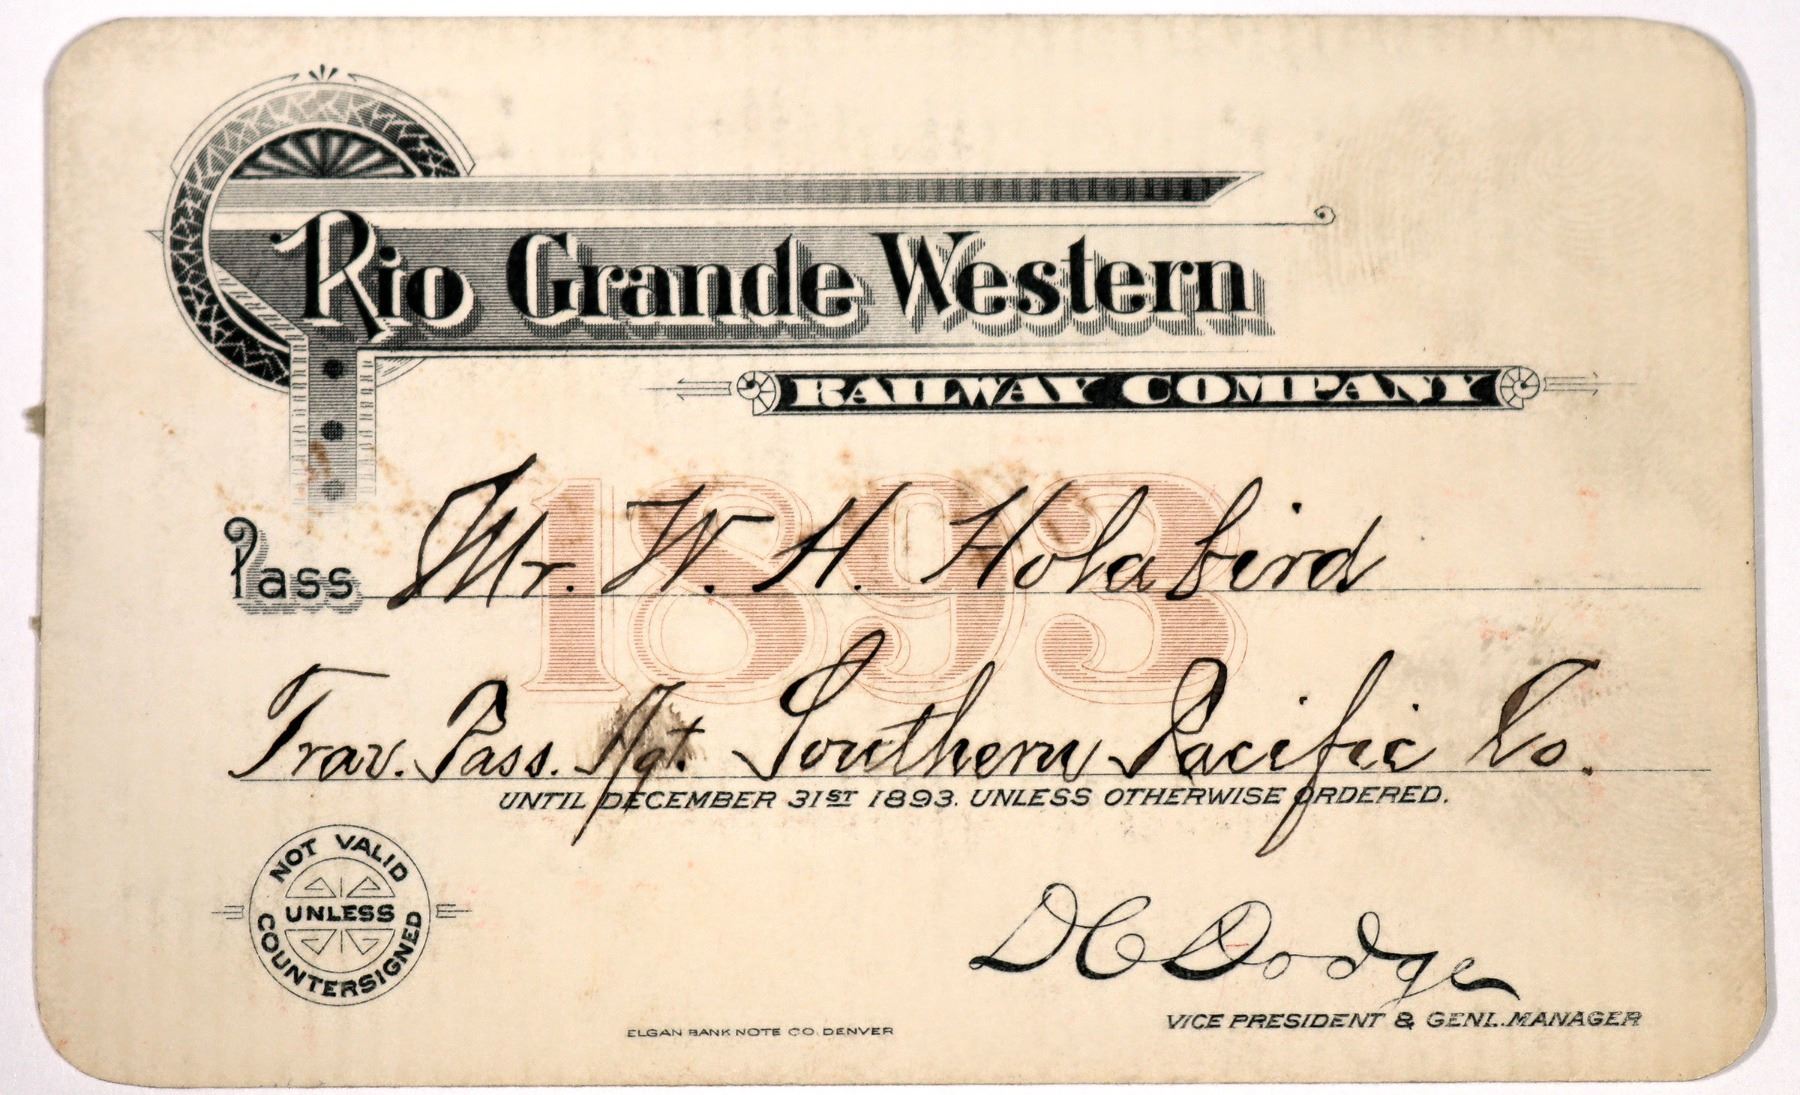 Rio Grande Western
RAILWAY COMPANY
1893
Pass Mr. W. H. Holabird
Trav. Pass. Agt. Southern Pacific Co.
UNTIL DECEMBER 31ST 1893. UNLESS OTHERWISE ORDERED.
NOT VALID
UNLESS
COUNTERSIGNED
D C Dodge
VICE PRESIDENT & GENL. MANAGER
ELGAN BANK NOTE CO. DENVER